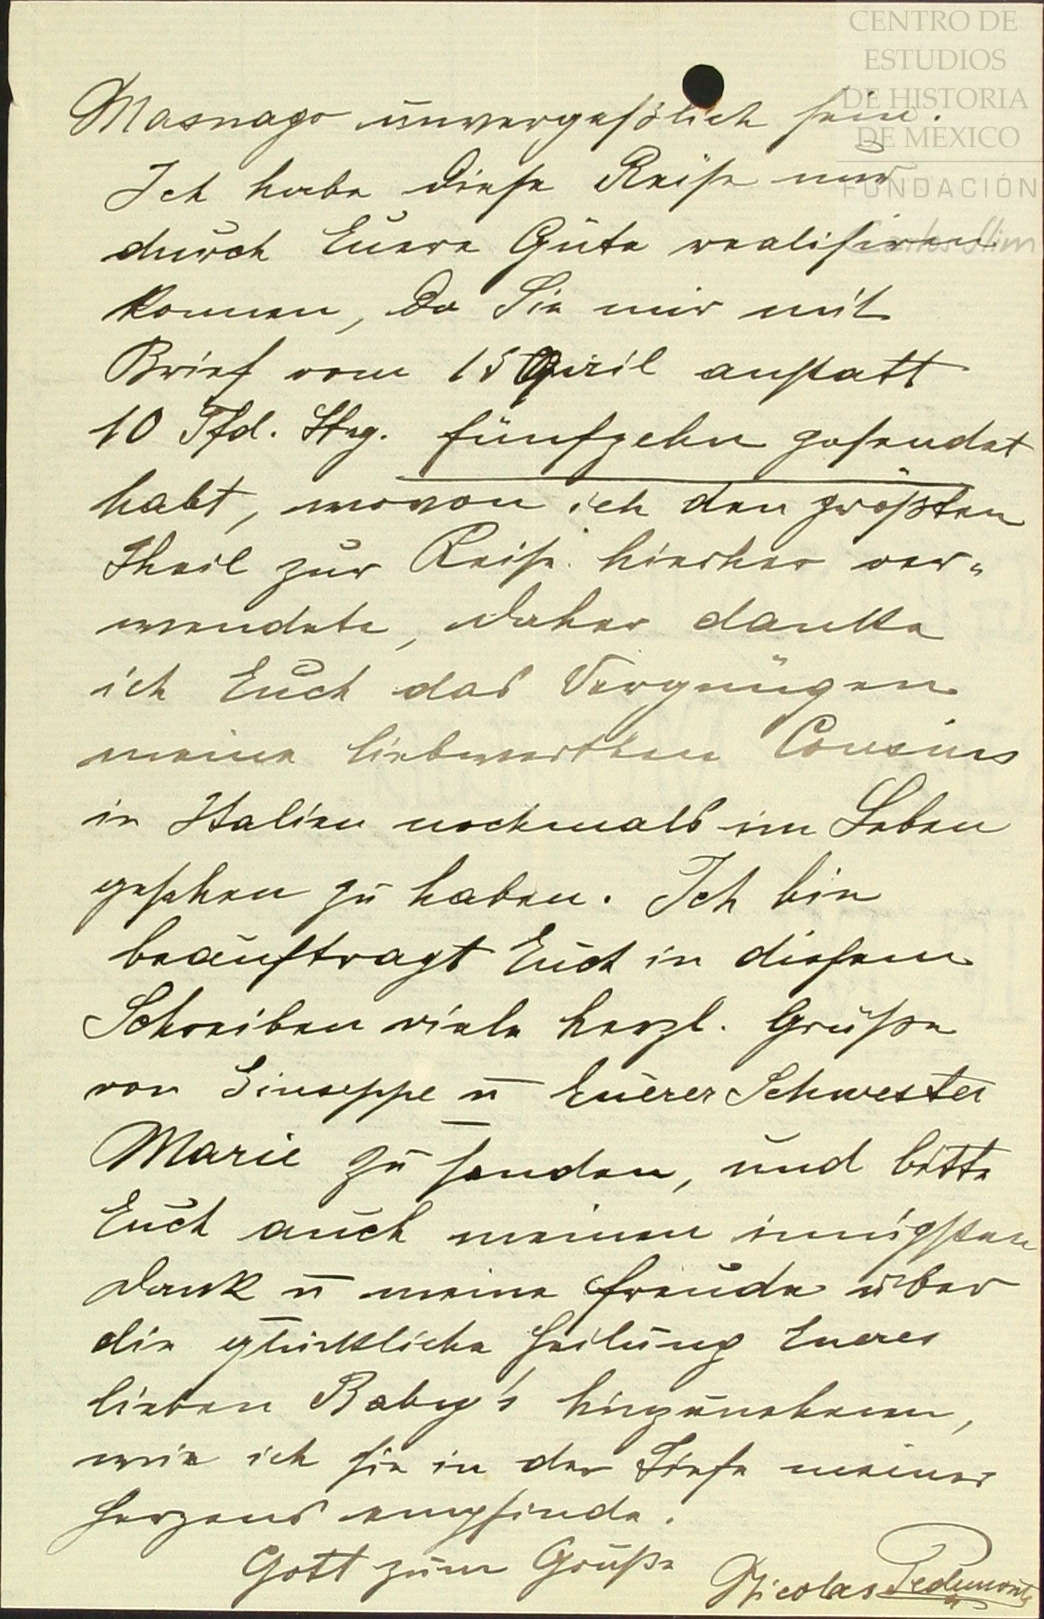 CENTRO DE
ESTUDIOS
DE HISTORIA
DE MÉXICO
FUNDACIÓN
Carlos Slim
Masnago unvergeßlich sein.
Ich habe diese Reise nur
durch Euere Güte realisiren
können, da Sie mir mit
Brief vom 15 April anstatt
10 Pfd. Stlg. fünfzehn gesendet
habt, wovon ich den größten
Theil zur Reise hierher ver-
wendete, daher danke
ich Euch das Vergnügen
meine liebwerthen Cousins
in Italien nochmals im Leben
gesehen zu haben. Ich bin
beauftragt Euch in diesem
Schreiben viele herzl. Grüße
von Giuseppe u Euerer Schwester
Marie zu senden, und bitte
Euch auch meinen innigsten
Dank u meine Freude über
die glückliche Heilung Eueres
lieben Baby's hinzunehmen,
wie ich sie in der Tiefe meines
Herzens empfinde.
Gott zum Gruße
Nicolas